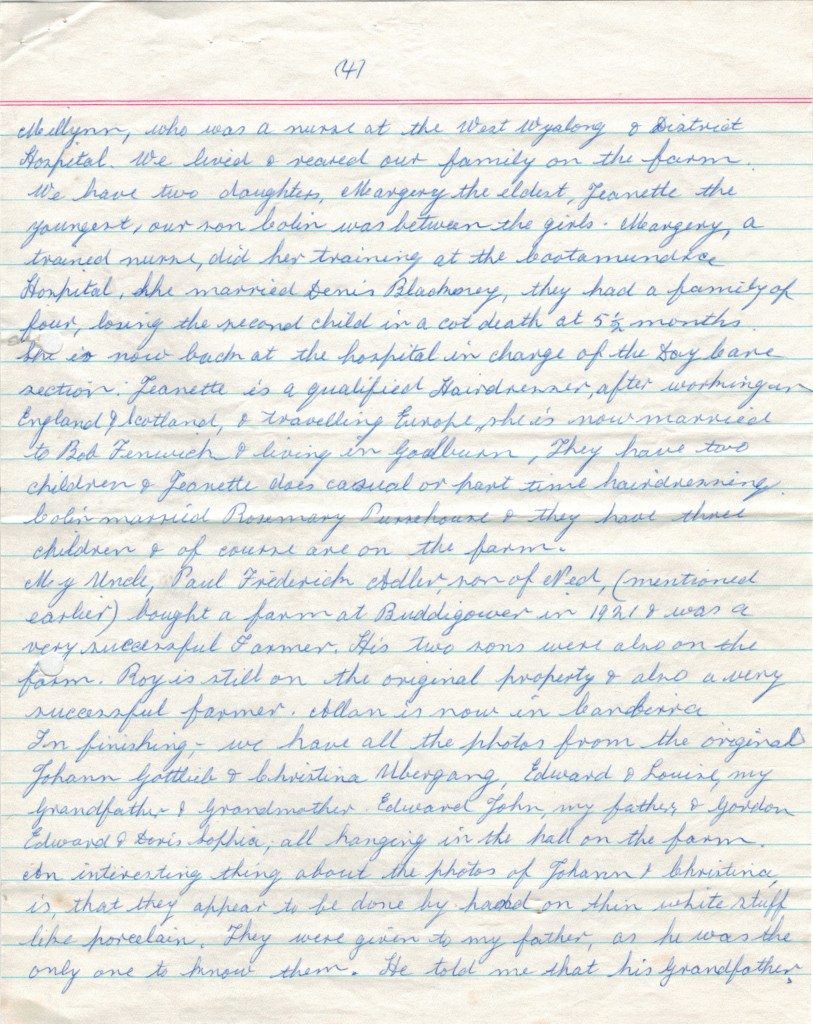 (4)
McMynn, who was a nurse at the West Wyalong & District
Hospital. We lived & reared our family on the farm.
We have two daughters, Margery the eldest, Jeanette the
youngest, our son Colin was between the girls. Margery, a
trained nurse, did her training at the Cootamundra
Hospital, she married Denis Blackney, they had a family of
four, losing the second child in a cot death at 5½ months.
She is now back at the hospital in charge of the Day Care
section. Jeanette is a qualified Hairdresser, after working in
England & Scotland, & travelling Europe, she is now married
to Bob Fenwick & living in Goulburn, They have two
children & Jeanette does casual or part time hairdressing.
Colin married Rosemary Pursehouse & they have three
children & of course are on the farm.
My Uncle, Paul Frederick Adler, son of Ned, (mentioned
earlier) bought a farm at Buddigower in 1921 & was a
very successful Farmer. His two sons were also on the
farm. Roy is still on the original property & also a very
successful farmer. Allan is now in Canberra
In finishing,- we have all the photos from the original
Johann Gottlieb & Christina Ubergang, Edward & Louise, my
Grandfather & Grandmother. Edward John, my father, & Gordon
Edward & Doris Sophia, all hanging in the hall on the farm.
An interesting thing about the photos of Johann & Christina,
is, that they appear to be done by hand on thin white stuff
like porcelain. They were given to my father, as he was the
only one to know them. He told me that his Grandfather,